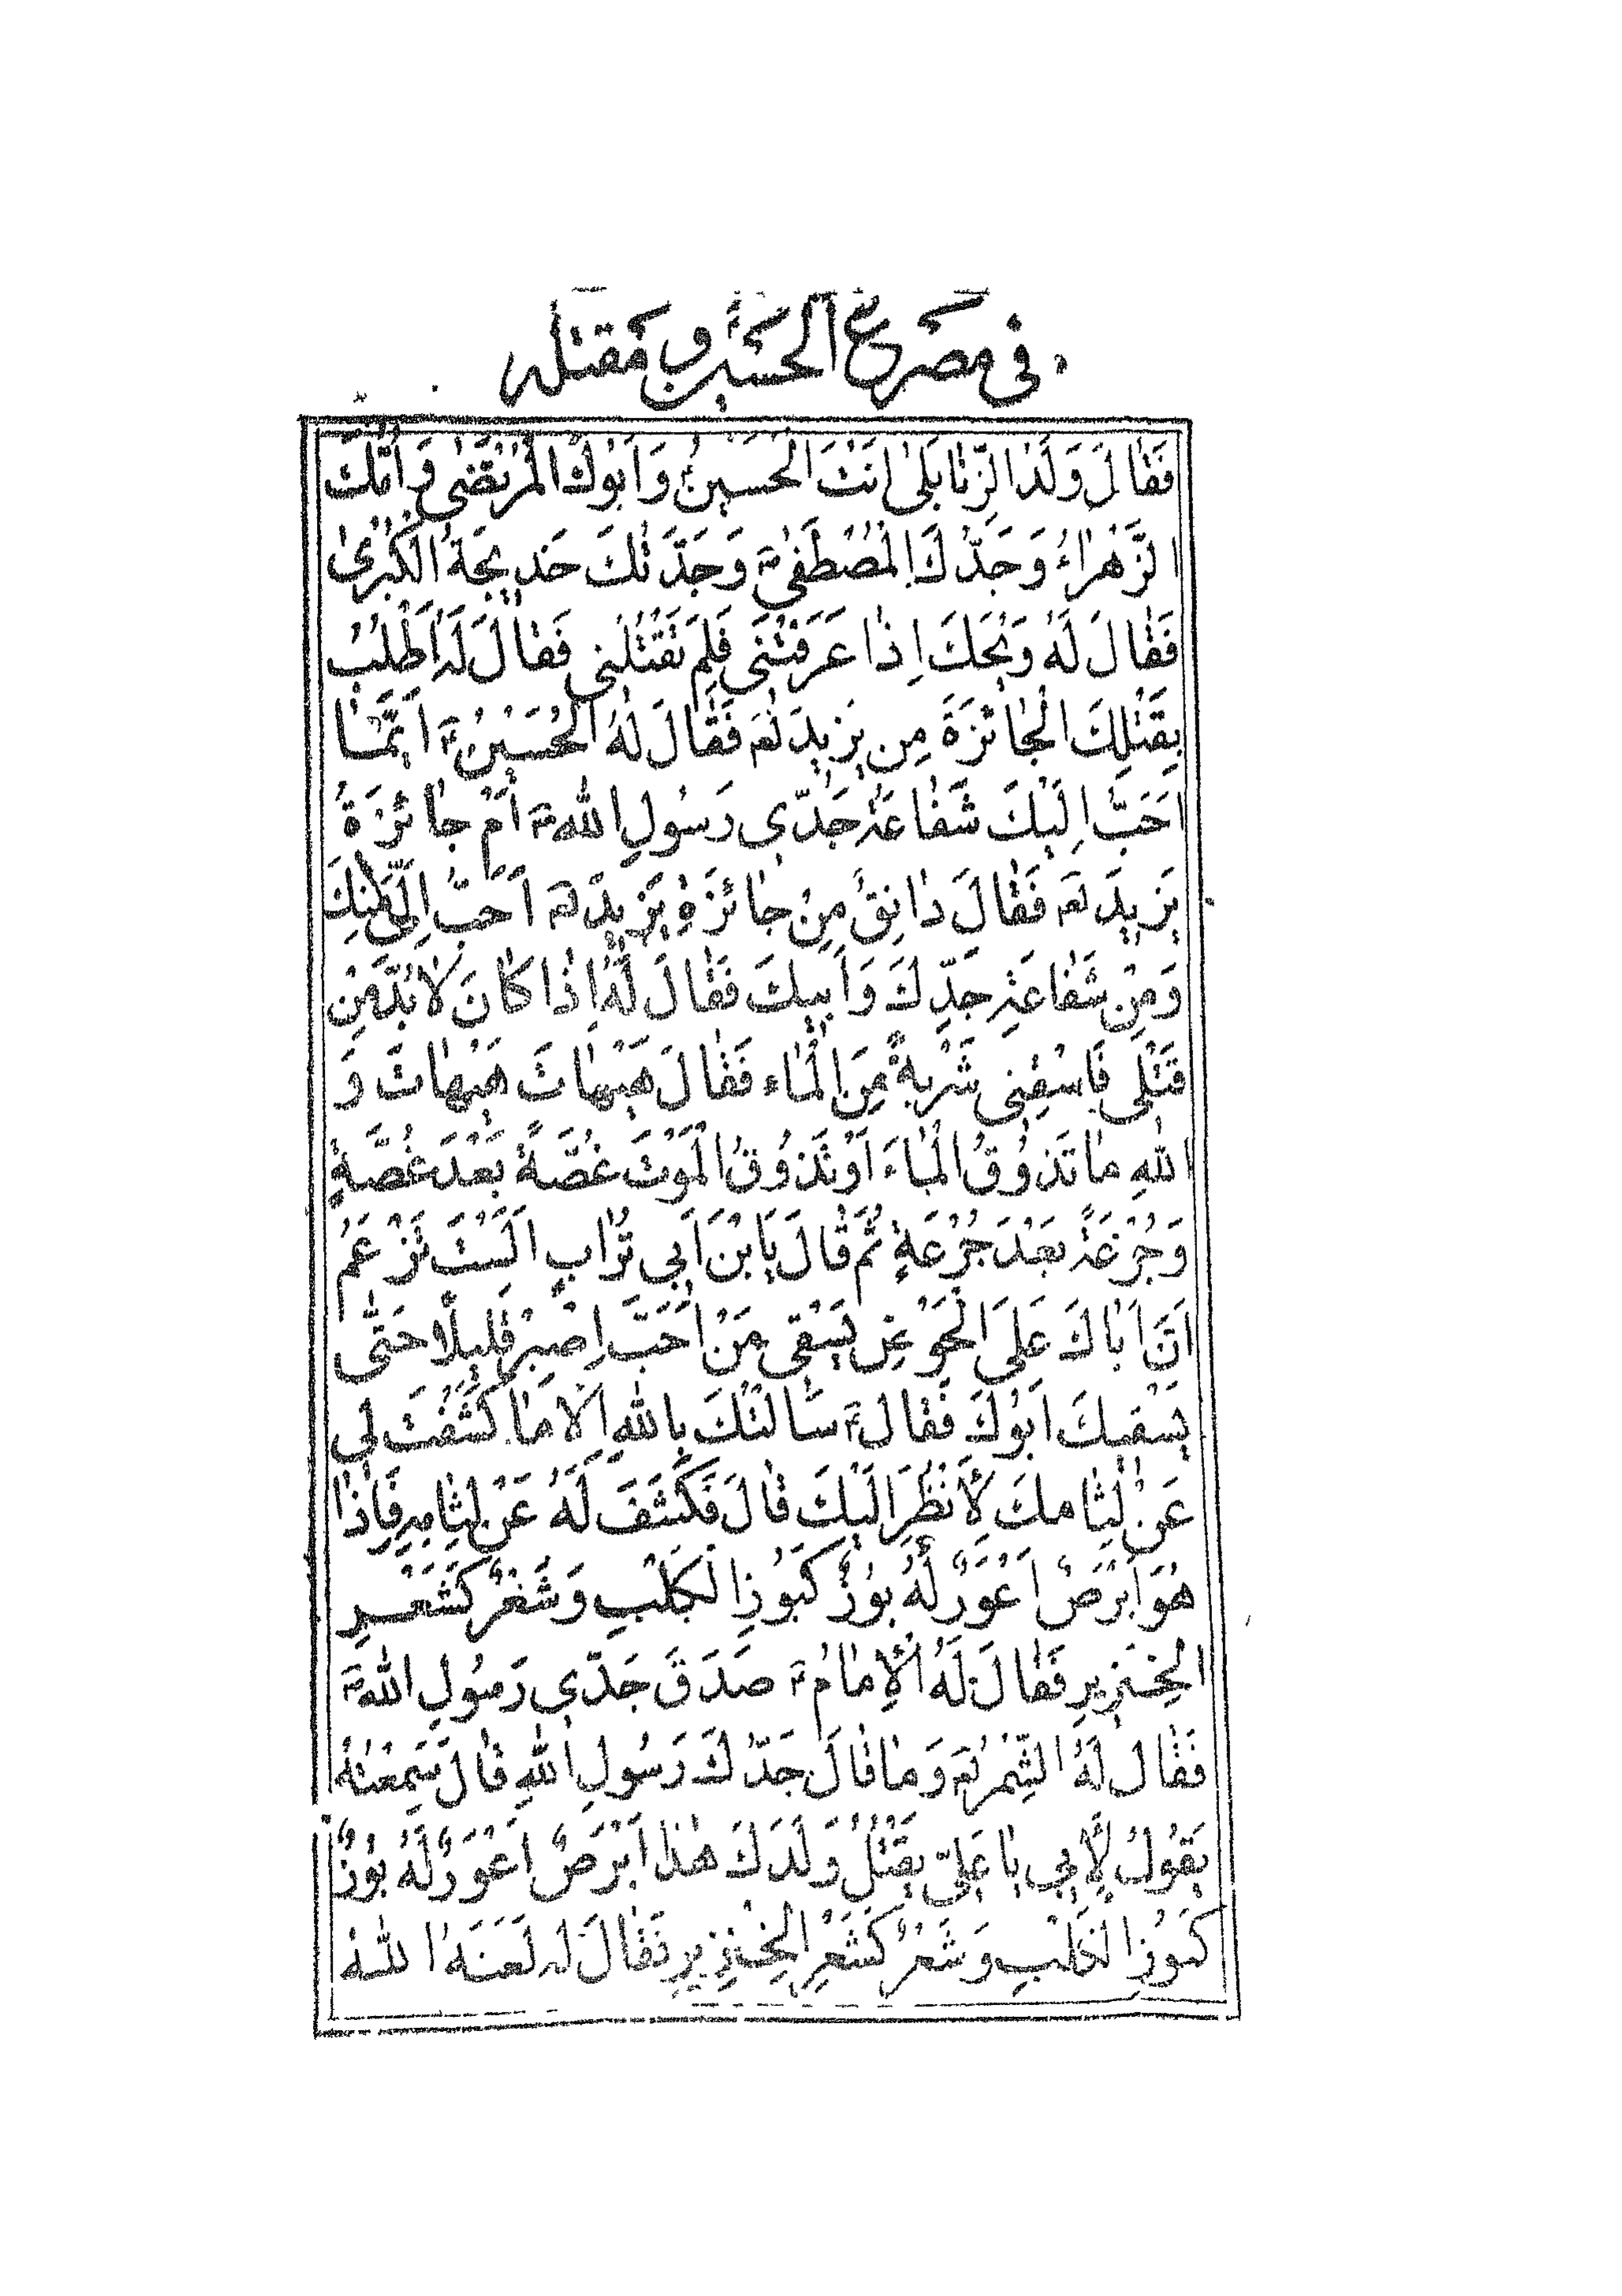 في مصرع الحسين ع ومقتله
فَقٰالَ وَلَدُ الزِّنٰا بَلىٰ اَنْتَ الْحُسَيْنُ وَاَبُوكَ الْمُرْتَضىٰ وَاُمُّكَ
الزَّهْرٰاءُ وَجَدُّكَ الْمُصْطَفىٰ ص وَجَدَّتُكَ خَدِيجَةُ الْكُبْرىٰ
فَقٰالَ لَهُ وَيْحَكَ اِذٰا عَرَفْتَنِي فَلِمَ تَقْتُلُنِي فَقٰالَ لَهُ اَطْلُبُ
بِقَتْلِكَ الْجٰائِزَةَ مِن يَزِيدَ لع فَقٰالَ لَهُ الْحُسَيْنُ ع اَيُّمٰا
اَحَبُّ اِلَيْكَ شَفٰاعَةُ جَدِّي رَسُولِ اللهِ ص اَمْ جٰائِزَةُ
يَزِيدَ لع فَقٰالَ دٰانِقٌ مِنْ جٰائِزَةِ يَزِيدَ لع اَحَبُّ اِلَيَّ مِنْكَ
وَمِنْ شَفٰاعَةِ جَدِّكَ وَاَبِيكَ فَقٰالَ لَهُ اِذٰا كٰانَ لٰابُدَّ مِن
قَتْلِي فَاسْقِنِي شَرْبَةً مِنَ الْمٰاءِ فَقٰالَ هَيْهٰاتَ هَيْهٰاتَ وَ
اللهِ مٰا تَذُوقُ الْمٰاءَ اَوْ تَذُوقُ الْمَوْتَ غُصَّةً بَعْدَ غُصَّةٍ
وَجُرْعَةً بَعْدَ جُرْعَةٍ ثُمَّ قٰالَ يَا بْنَ اَبِي تُرٰابٍ اَلَسْتَ تَزْعَمُ
اَنَّ اَبٰاكَ عَلَى الْحَوْضِ يَسْقِي مَنْ اَحَبَّ اِصْبِرْ قَلِيلًا حَتّٰى
يَسْقِيَكَ اَبُوكَ فَقٰالَ ع سَاَلْتُكَ بِاللهِ اِلّا مٰا كَشَفْتَ لِي
عَنْ لِثٰامِكَ لِاَنْظُرَ اِلَيْكَ قٰالَ فَكَشَفَ لَهُ عَنْ لِثٰامِهِ فَاِذٰا
هُوَ اَبْرَصٌ اَعْوَرٌ لَهُ بُوزٌ كَبُوزِ الْكَلْبِ وَشَعْرٌ كَشَعْرِ
الْخِنْزِيرِ فَقٰالَ لَهُ الْاِمٰامُ ع صَدَقَ جَدِّي رَسُولِ اللهِ ص
فَقٰالَ لَهُ الشِّمْرُ لع وَمٰا قٰالَ جَدُّكَ رَسُولِ اللهِ قٰالَ سَمِعْتُهُ
يَقُولُ لِاَبِي يٰا عَلِيّ يَقْتُلُ وَلَدَكَ هٰذٰا اَبْرَصٌ اَعْوَرٌ لَهُ بُوزٌ
كَبُوزِ الْكَلْبِ وَشَعْرٌ كَشَعْرِ الْخِنْزِيرِ فَقٰالَ لَهُ لَعَنَهُ اللهُ